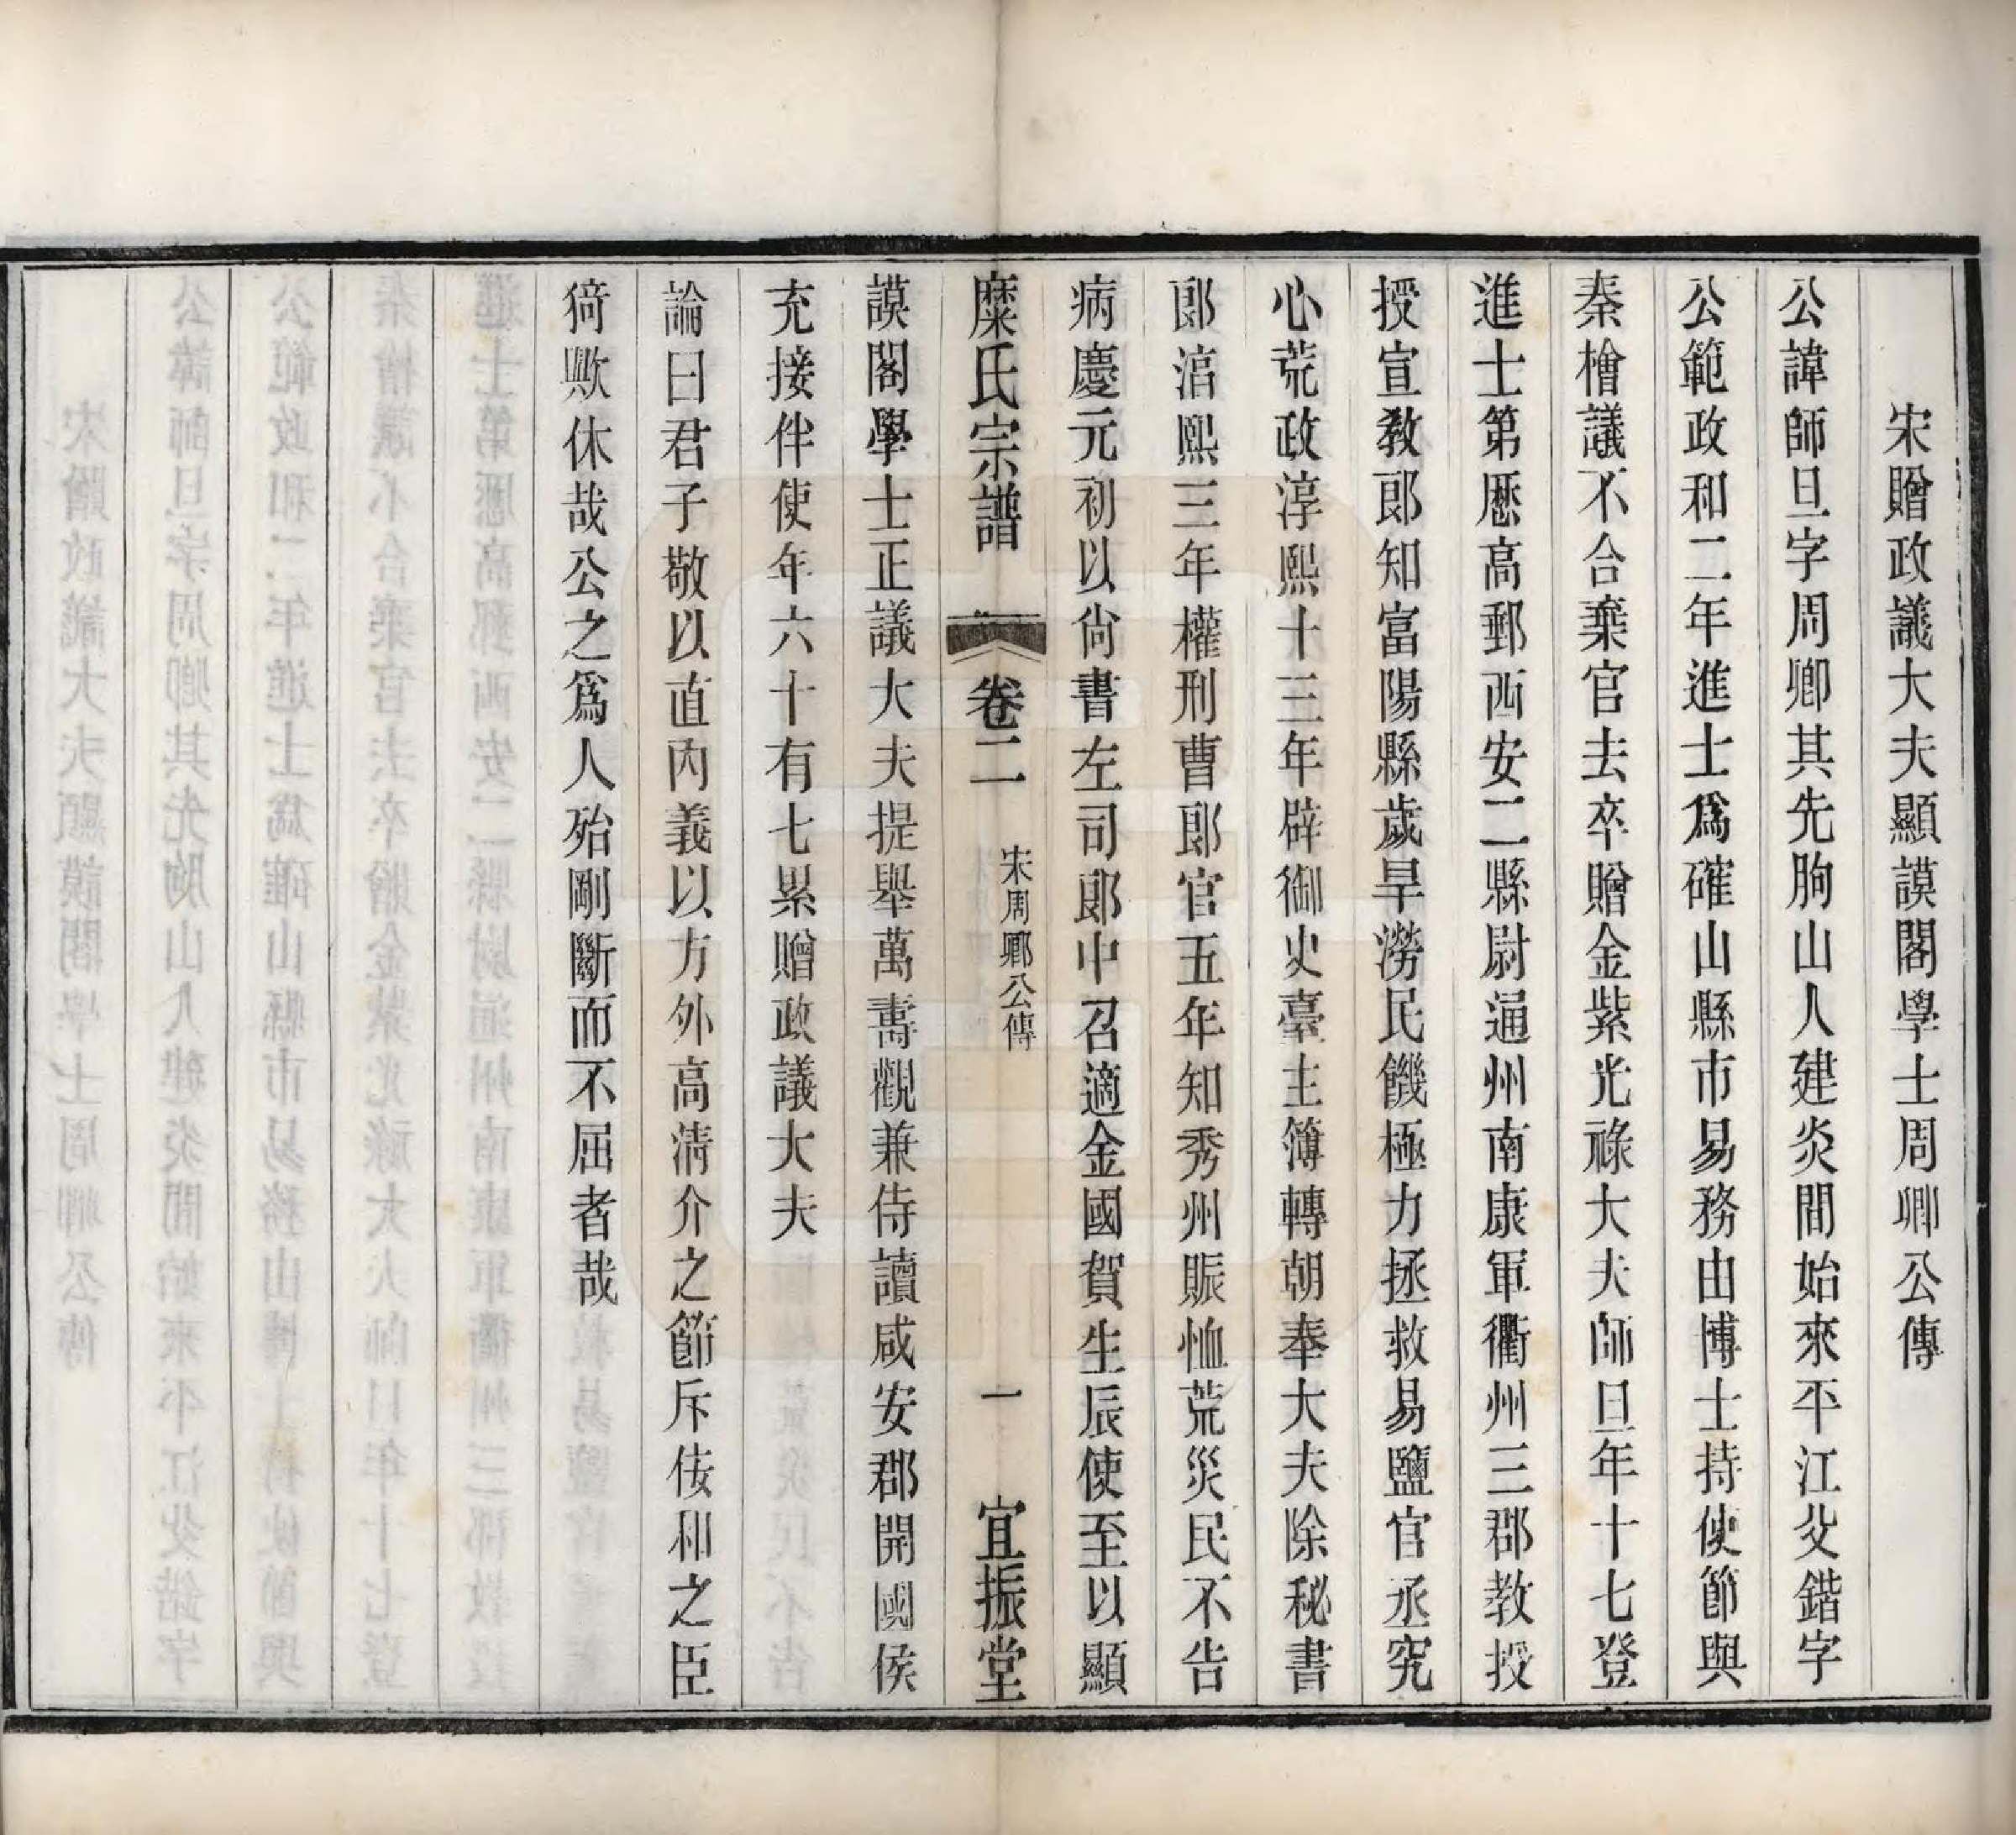 宋贈政議大夫顯謨閣學士周卿公傳
公諱師旦字周卿其先朐山人建炎間始來平江父鍇字
公範政和二年進士爲確山縣市易務由博士持使節與
秦檜議不合棄官去卒贈金紫光祿大夫師旦年十七登
進士第歷高郵西安二縣尉通州南康軍衢州三郡教授
授宣敎郎知富陽縣歲旱澇民饑極力拯救易鹽官丞究
心荒政淳熙十三年辟御史臺主簿轉朝奉大夫除秘書
郎湻熙三年權刑曹郎官五年知秀州賑恤荒災民不告
病慶元初以尙書左司郎中召適金國賀生辰使至以顯
糜氏宗譜 卷二 宋周卿公傳 一 宜振堂
謨閣學士正議大夫提舉萬壽觀兼侍讀咸安郡開國侯
充接伴使年六十有七累贈政議大夫
論曰君子敬以直內義以方外高清介之節斥佞和之臣
猗歟休哉公之爲人殆剛斷而不屈者哉